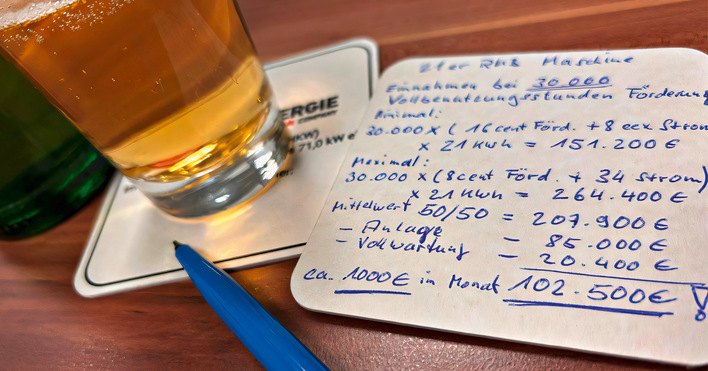 ERGIE
COMPANY
KW)
71,0 kW e
2ter RMB Maschine
Einnahmen bei 30.000
Vollbenutzungsstunden Förderung
Minimal:
30.000 x (16 cent Förd. + 8 eex Strom
x 21 kWh = 151.200 €
Maximal:
30.000 x (8 cent Förd. + 34 Strom)
x 21 kWh = 264.400 €
Mittelwert 50/50 = 207.900 €
- Anlage - 85.000 €
- Vollwartung - 20.400 €
ca. 1000 € im Monat 102.500 € !